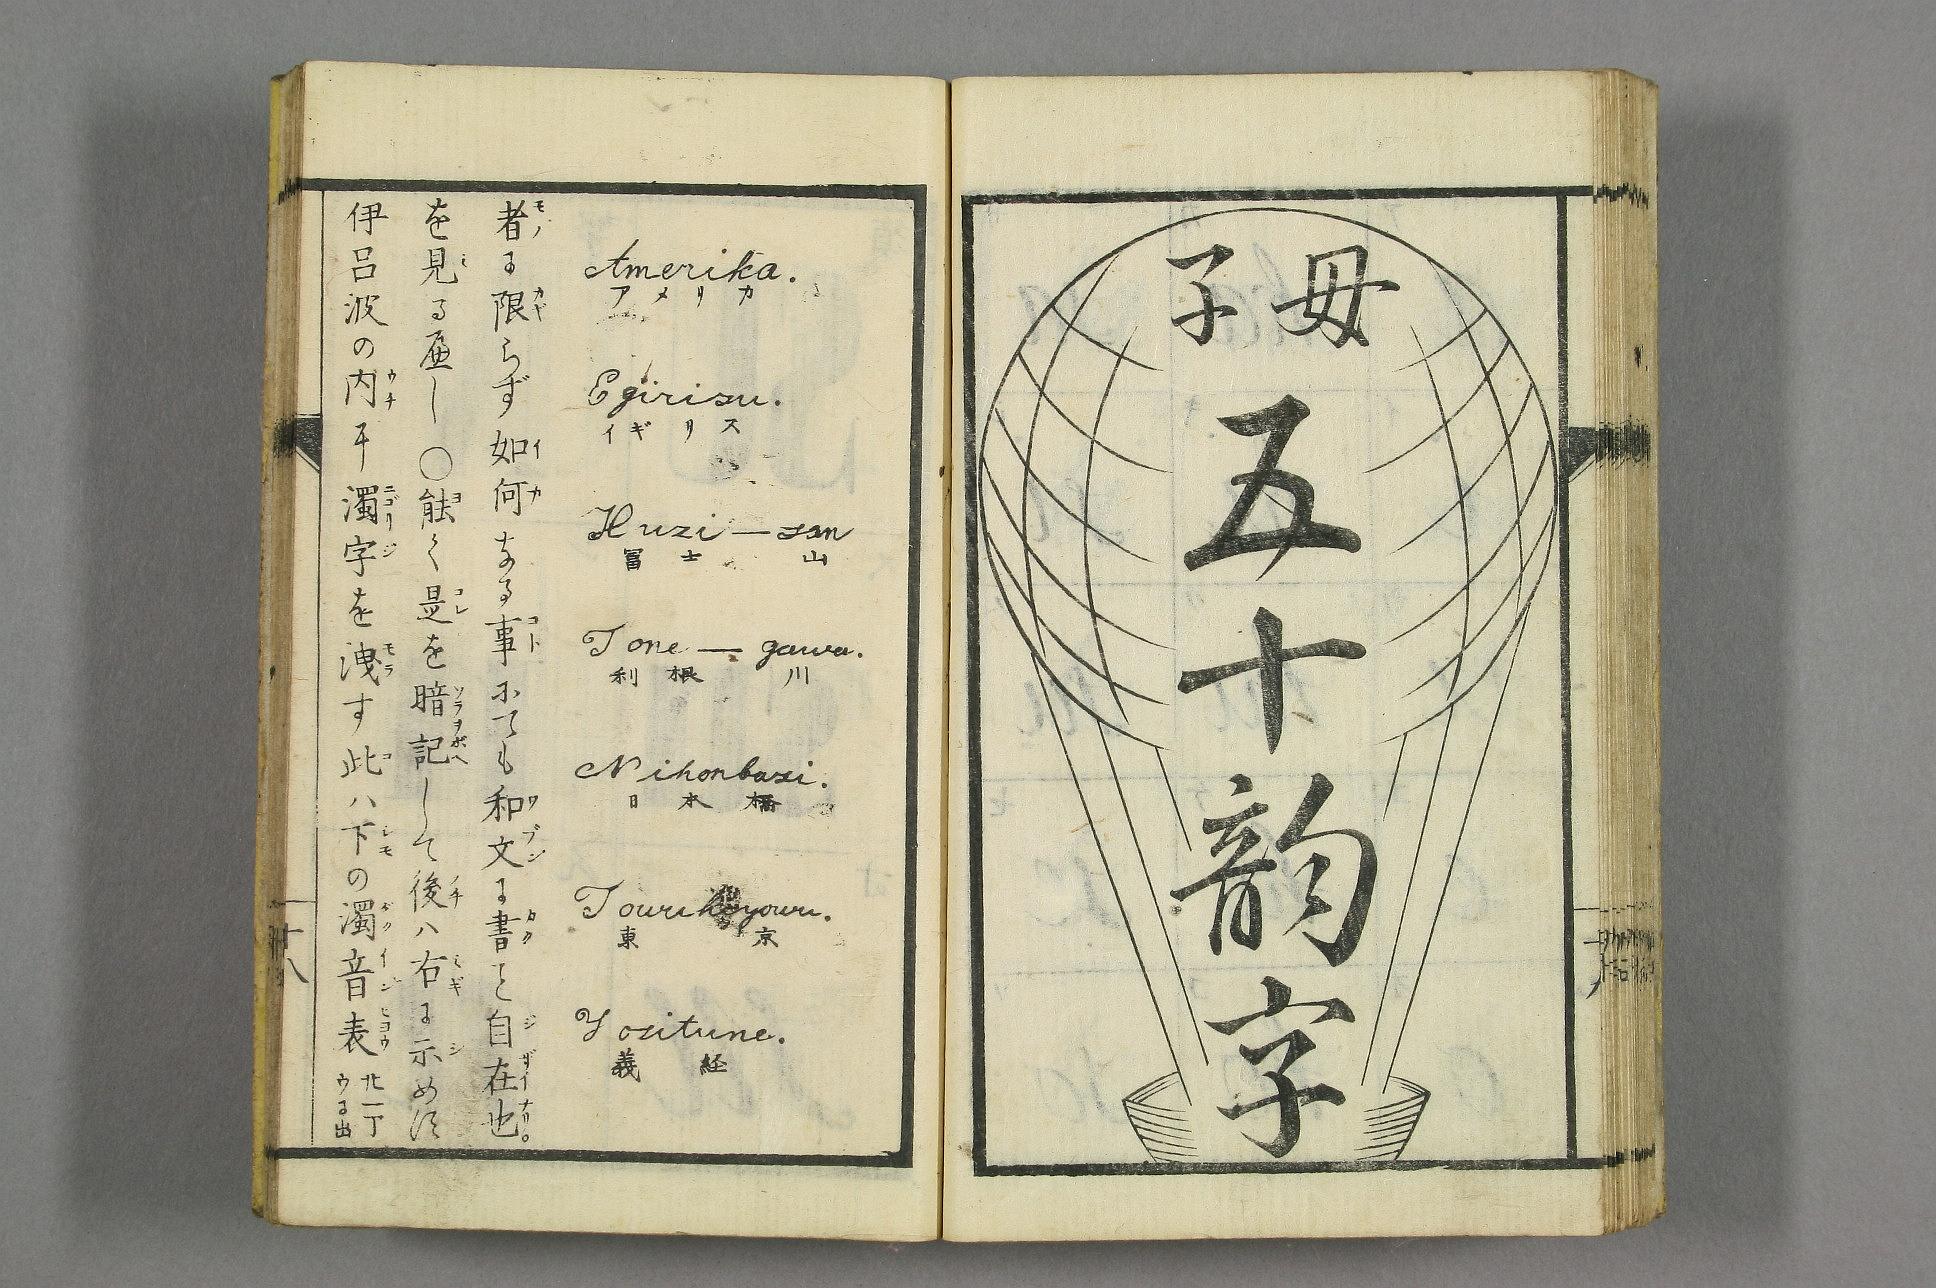 伊呂波の内チ濁字を洩す此ハ下の濁音表 廿一丁ウに出
を見る可し○能く是を暗記して後ハ右に示めす
者に限らず如何なる事にても和文に書こと自在也
Amerika.
アメリカ
Egirisu.
イギリス
Huzi—san
冨士山
Tone—gawa.
利根川
Nihonbasi.
日本橋
東京
Yositune.
義経
十八
子母
五十韵字
十九